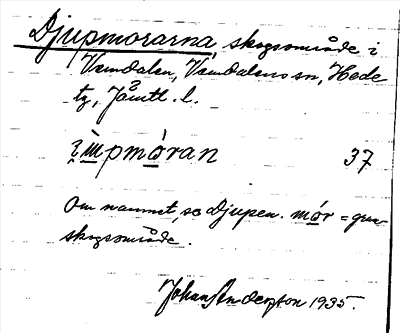 Djupmorarna, skogsområde i
Vemdalen, Vemdalens sn, Hede
tg, Jämtl. l.
móran 37
Om namnet, se Djupen. mór = gran
skogsområde.
Johan Anderzon 1935.